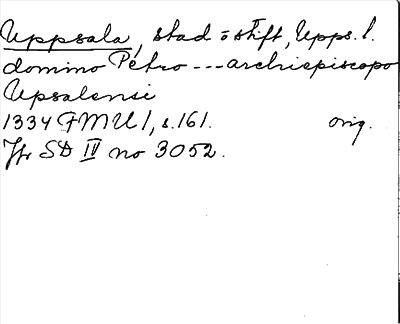 Uppsala, stad o stift, Upps. l.
domino Petro --- archiepiscopo
Upsalensi
1334 FMU 1, s. 161. orig.
Jfr SD IV no 3052.